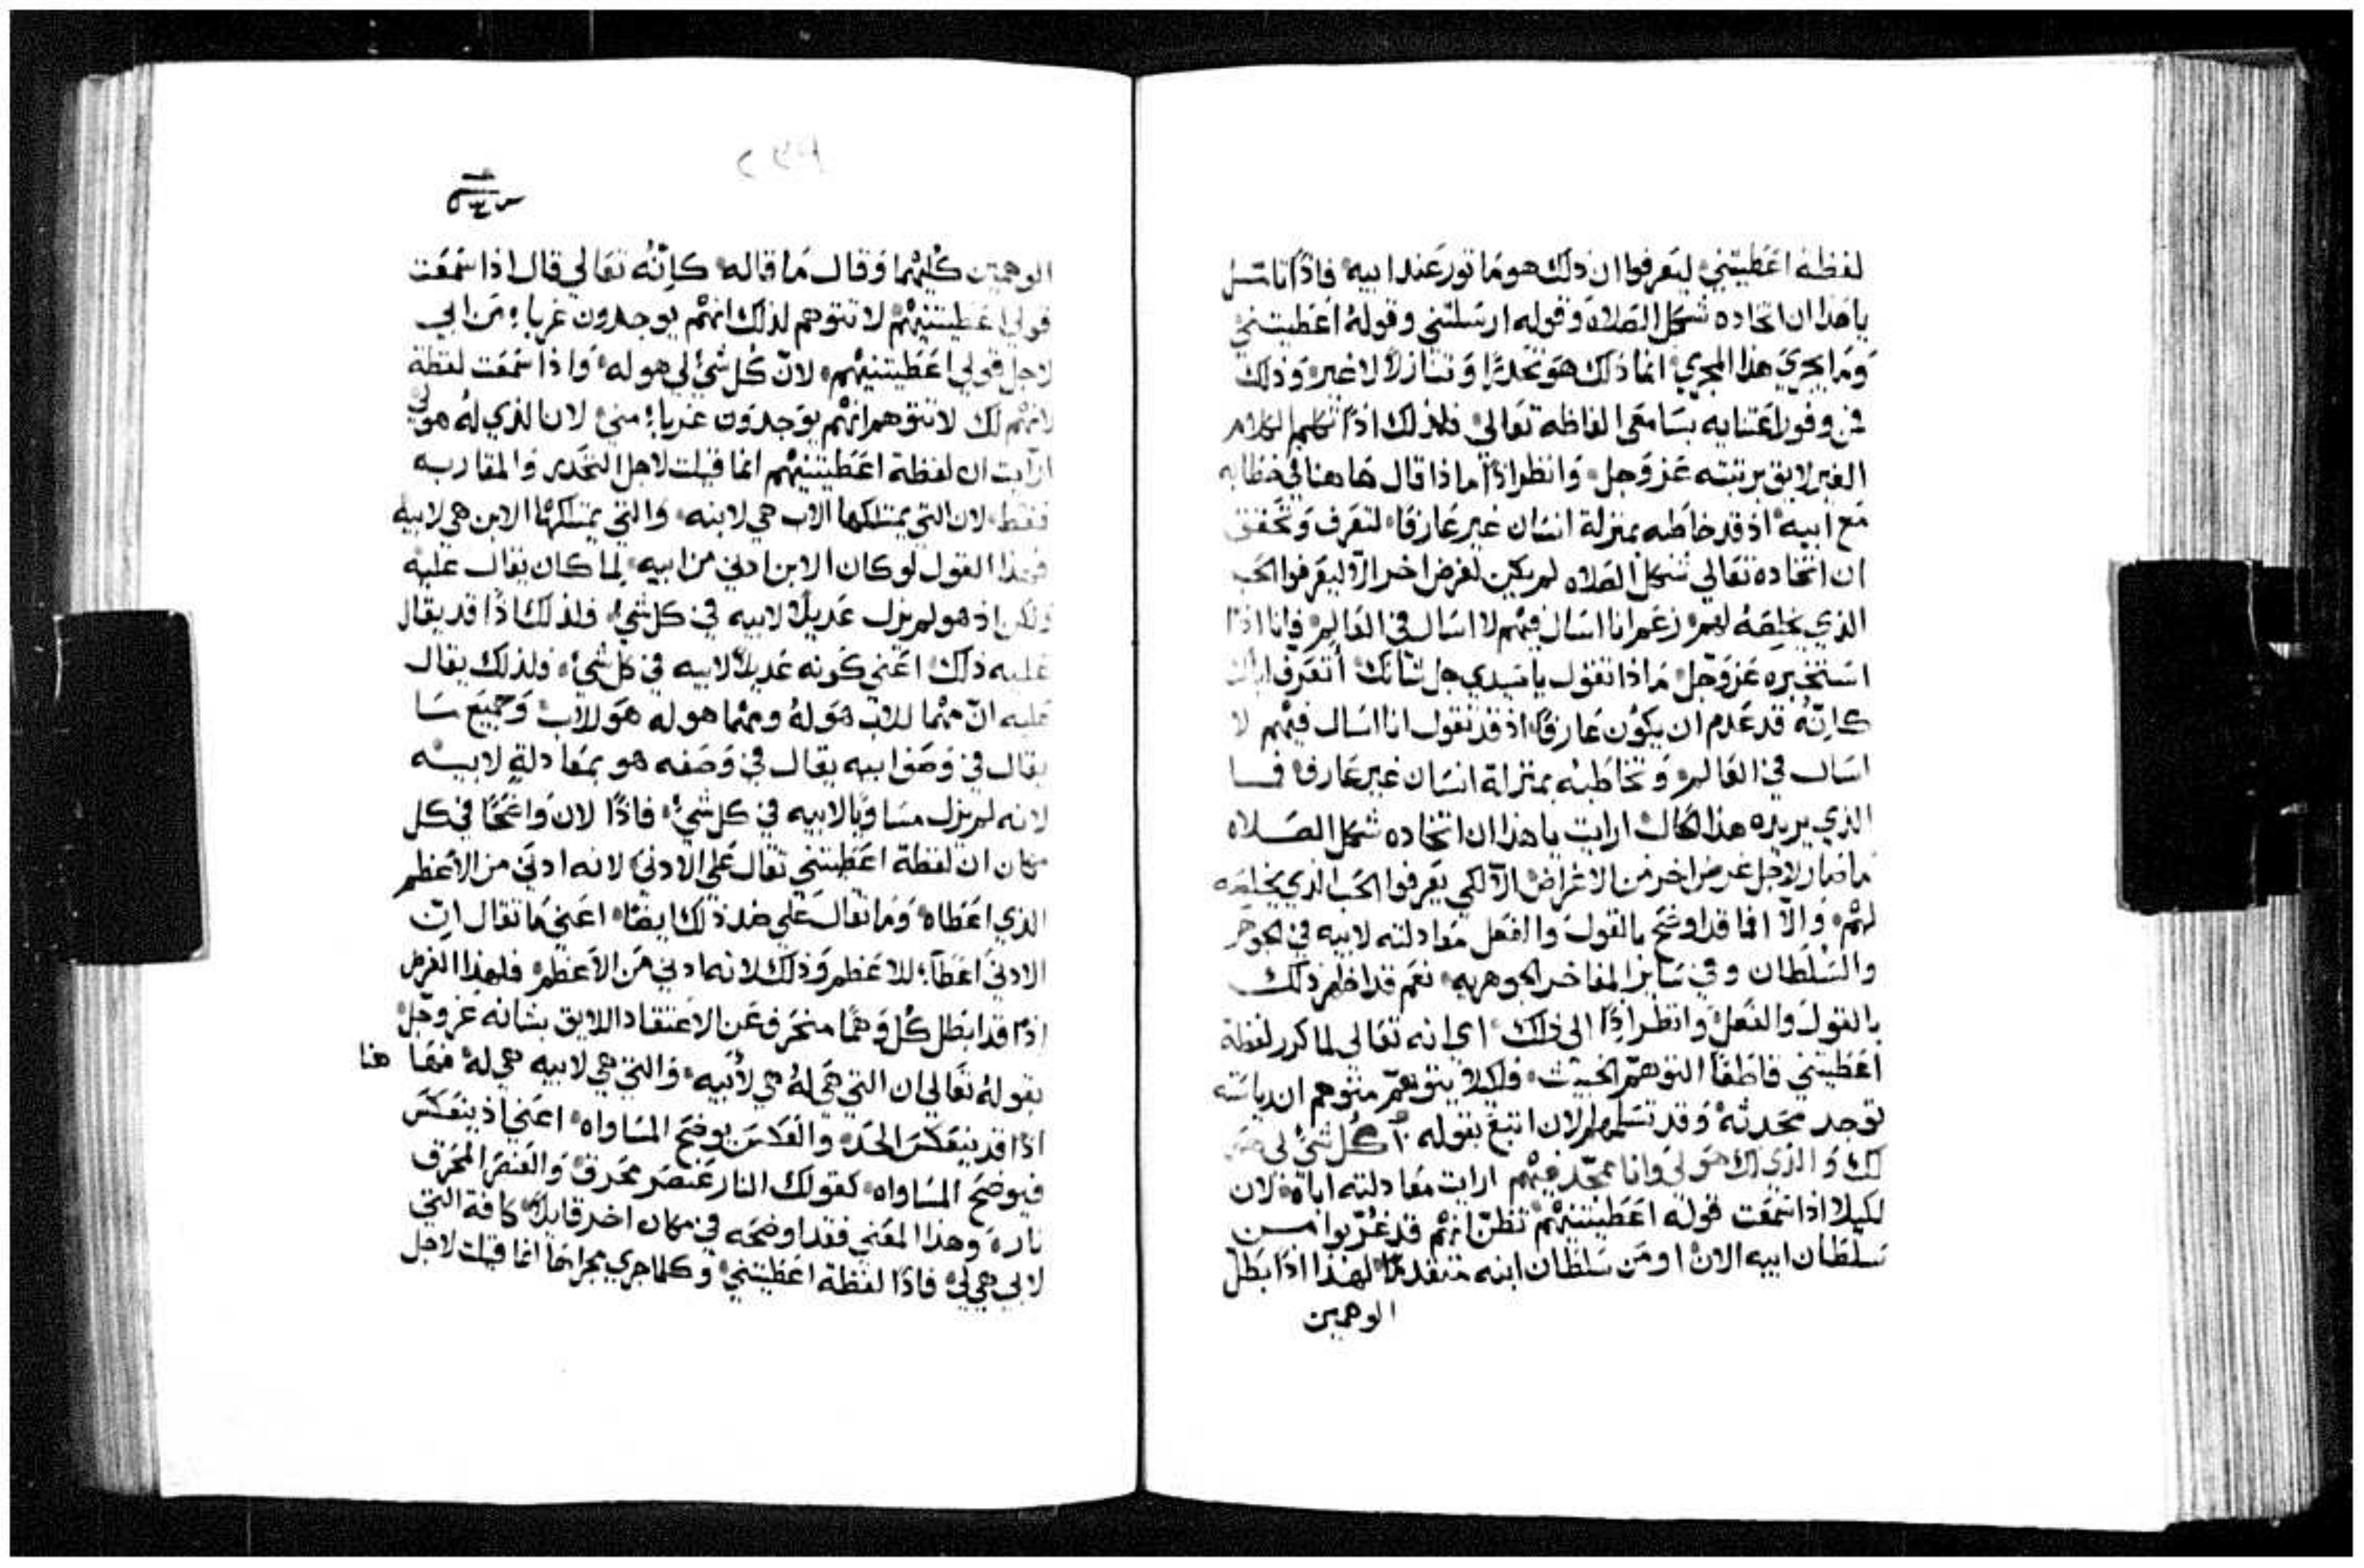 لفظة اعَطيتني ليَعرفوا ان ذلك هو مَا تور عند ابيه فاذًا تامّل
يا هَذا ان اتخاده شكل الصَلاة وقوله ارسَلتني وقولهُ اعَطيتني
وَمَا يجري هذا المجري انما ذلك هوَ تحَدرًا وَتنازلاً لا غير وَذلك
من وفور اعَتنايه بسَامعَي الفاظه تعَالي فلذلك اذًا تكلم الكلام
الغير لايق برتبته عَز وَجل وَانظر اذًا ماذا قال هَاهنا في خطابه
مَع ابيه اذ قد خاطبه بمنزلة انسَان غير عَارفًا لتعَرف وَتحَقق
ان اتخاده تعَالي شكل الصَلاه لم يكن لغرض اخر الاّ ليعَرفوا الحب
الذي يخلصَهُ لهم زعَم انا اسَال فيهم لا اسَال في العَالم فانا اذًا
استخبره عَز وَجل مَاذا تقول يا سَيدي جل شانك أتعَرف اباك
كانّهُ قد عَدم ان يكوُن عَارفًا اذ قد تقول انا اسَال فيهم لا
اسَال في العَالم وَتخاطبه بمنزلة انسَان غير عَارف فما
الذي يريده هذا الكلام ارايت يا هذا ان اتخاده شكل الصَلاه
مَا صَار لاجل غرض اخر من الاغراض الاّ لكي يعَرفوا الحَب الذي يخلصَه
لهُم وَالاّ انما قد اوضَح بالقول والفعَل معَادلته لابيه في الجوهَر
والسُلطان وفي سَاير المفاخر الجوهريه نعَم قد اظهر ذلك
بالقول والفعَل وَانظر اذًا الى ذلك اي انه تعَالي لما كرر لفظة
اعَطيتني قاطعًا التوهمّ الخبيث فلكيلا يتوهمّ متوهم ان رياسته
توجد محَدثهْ وَقد تسَلمها الان اتبعَ بقوله كُل شيٍ لي هوَ
لك وَالذي لك هوَ لي وَانا ممجّد فيهم ارايت معَادلته اياهْ لان
لكيلا اذا سَمعَت قوله اعَطيتنيهُم تظنّ انهُم قد غُرّبوا من
سَلطان ابيه الان او مَن سَلطان ابنه متقدمًا لهذا اذًا بَطل
الوهمين
الوهمين كليهُما وَقال مَا قاله كانّهُ تعَالي قال اذا سَمعَت
قولي اعَطيتنيهُم لا تتوهم لذلك انهُم يوجدون غربآءِ مَن ابي
لاجل قولي اعَطيتنيهُم لانّ كُل شيٍ لي هو له وَاذا سَمعَت لفظة
لانهُم لك لا تتوهم انهُم يوَجدوَن غربآءِ مني لان الذي لهُ هو لي
ارَايت ان لفظة اعَطيتنيهُم انما قيلت لاجل التحَدر وَالمقاربه
فقط لان التي يمتلكها الاب هي لابنه وَالتي يمتلكهَا الابن هي لابيه
فهذا القول لو كان الابن ادني من ابيه لما كان يقال عَليه
ولكن اذ هو لم يزل عَديلاً لابيه في كل شيٍ فلذلك اذًا قد يقال
عَليه ذلك اعَني كَونه عَديلاً لابيه في كل شيٍ فلذلك يقال
عَليه انّ مهْما للاب هوَ لهُ ومهْما هو له هوَ للاب وَجميعَ مَا
يقال في وَصَف ابيه يقال في وَصَفه هو بمعَادلةٍ لابيه
لانه لم يزل مسَاويًا لابيه في كل شيٍ فاذًا لان وَاضحًا في كل
مكان ان لفظة اعَطيتني تقال عَلي الادني لانه ادني من الاعَظم
الذي اعَطاه وَمَا تقال عَلي ضد ذلك ايضًا اعَني مَا تقال انّ
الادني اعَطآءِ للاعَظم وَذلك لانه ادني مَن الاعَظم فلهذا الغرض
اذًا قد ابطل كُل وَهمًا منحَرف عَن الاعَتقاد اللايق بشانه عَز وَجل
بقولهُ تعَالي ان التي هيَ لهُ هي لأبيه وَالتي هي لابيه هي لهْ فهَا هنا
اذًا قد ينعَكسَ الحَد والعَكسَ يوضحَ المسَاواه اعَني اذ ينعَكسَ
فيوضحَ المسَاواه كقولك النار عَنصر محَرق وَالعَنصَر المحَرق
ناره وهذا المعَني فقد اوضحَه في مكان اخر قايلاً كافة التي
لابي هي لي فاذًا لفظة اعَطيتني وكلما جري مجراهَا انما قيلت لاجل